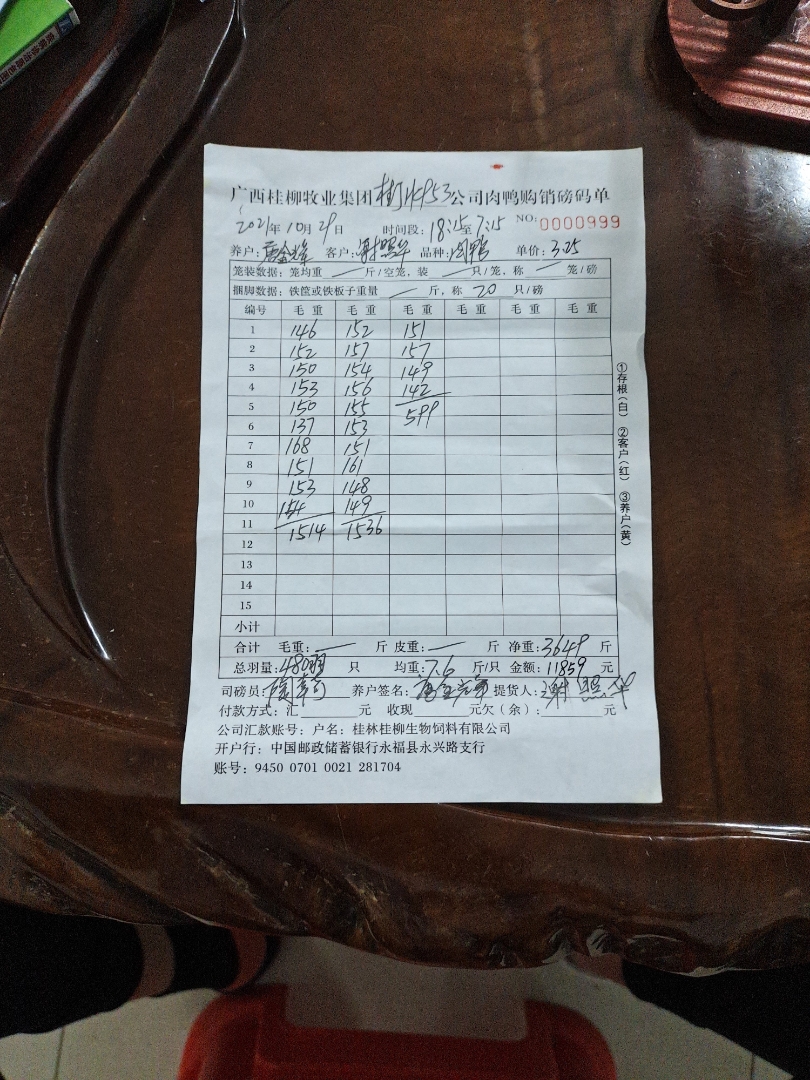 广西桂柳牧业集团 桂林 公司肉鸭购销磅码单
2021年10月29日 时间段：18:15至7:15 NO：0000999
养户： 客户：谢照华 品种：肉鸭 单价：3.25
笼装数据：笼均重 — 斤/空笼，装 — 只/笼，称 — 笼/磅
捆脚数据：铁筐或铁板子重量 — 斤，称 20 只/磅
编号 毛重 毛重 毛重 毛重 毛重 毛重
1 146 152 151
2 152 157 157
3 150 154 149
4 153 156 142
5 150 155 599
6 137 153
7 168 151
8 151 161
9 153 148
10 154 149
11 1514 1536
12
13
14
15
小计
合计 毛重：— 斤 皮重：— 斤 净重：3649 斤
总羽量：480羽 只 均重：7.6 斤/只 金额：11859 元
司磅员： 养户签名： 提货人：谢照华
付款方式：汇 元 收现 元欠（余）： 元
公司汇款账号：户名：桂林桂柳生物饲料有限公司
开户行：中国邮政储蓄银行永福县永兴路支行
账号：9450 0701 0021 281704
①存根（白） ②客户（红） ③养户（黄）